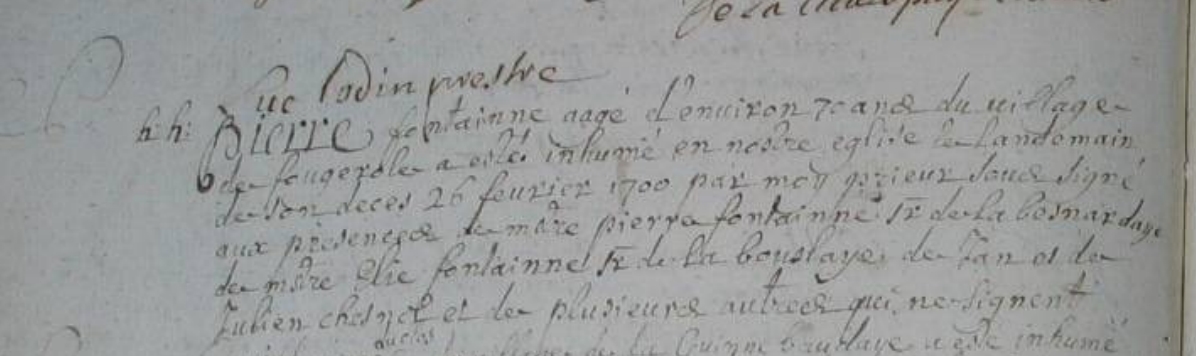 de la
Luc Lodin prestre
h: h: Pierre fontainne aagé d'enuiron 70 ans du uillage
de fougerole a esté inhumé en nostre eglise le landomain
de son deces 26 feurier 1700 par moy prieur sous signé
aux presences de mtre pierre fontainne sr de la besnardaye
de mtre Elie fontainne sr de la bouslaye de Jan et de
Julien chesnel et de plusieurs autres qui ne signent
de la bouslaye a esté inhumé